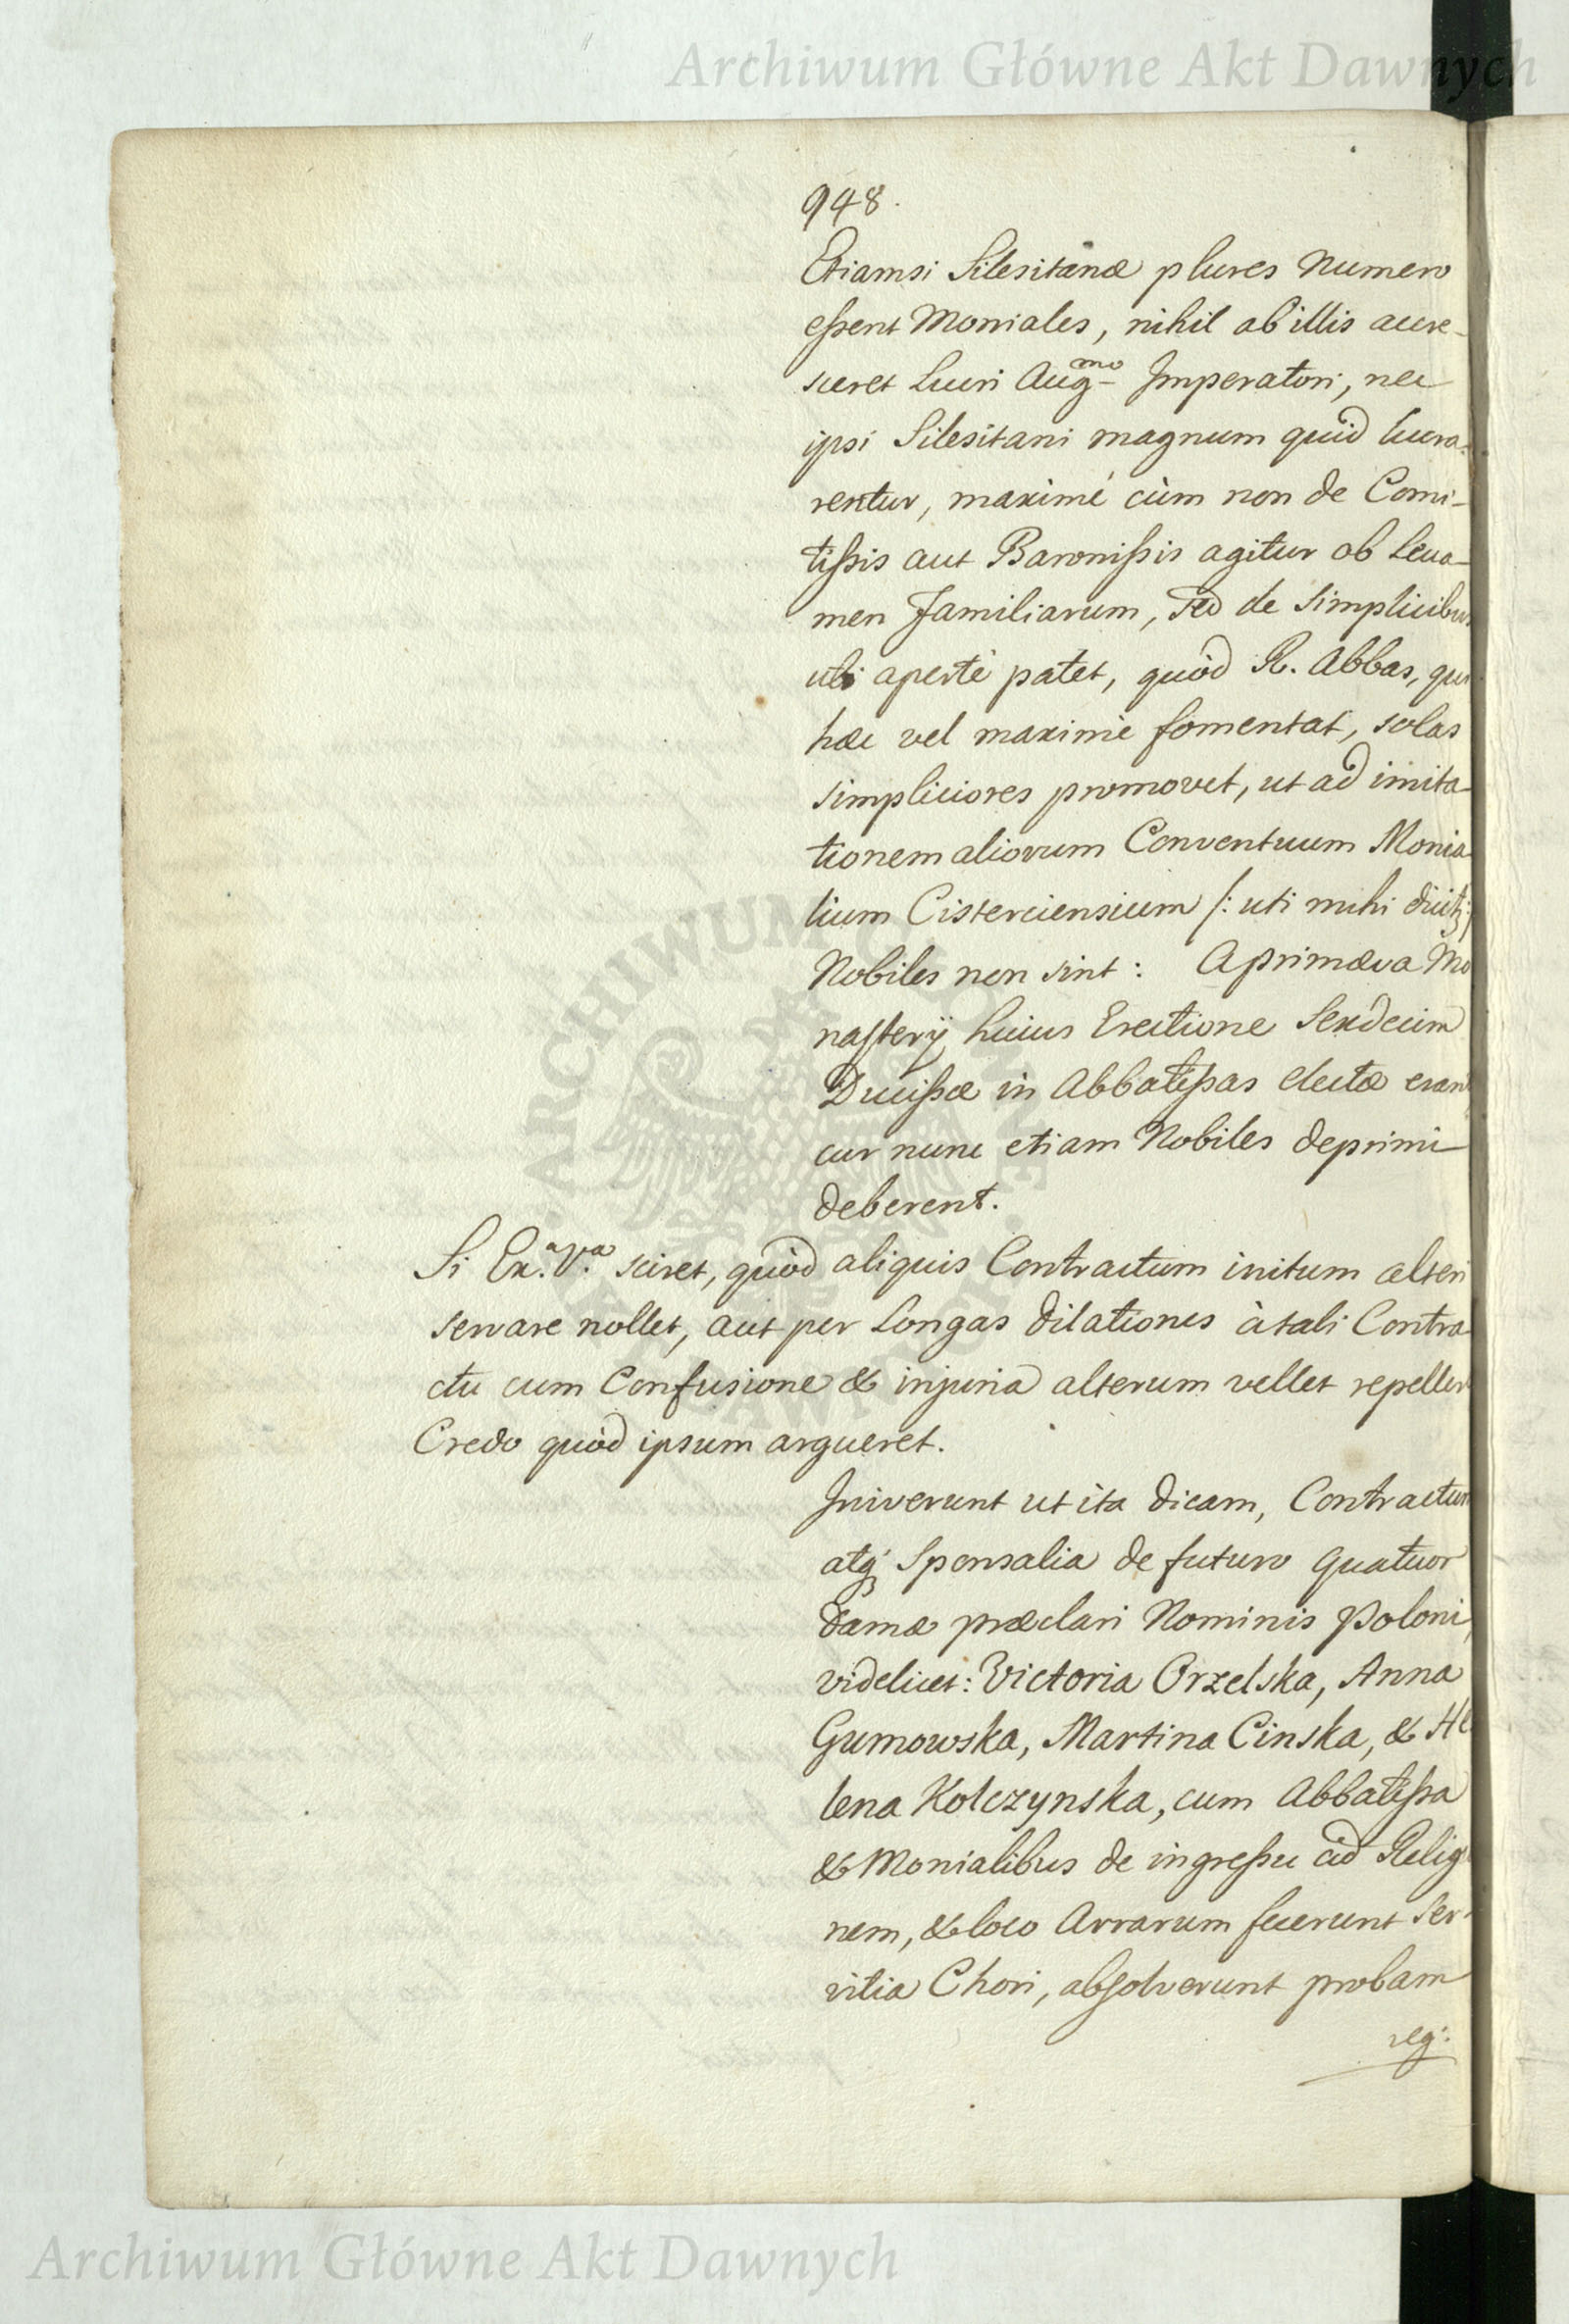 Archiwum Główne Akt Dawnych
948.
Etiamsi Silesitanæ plures Numero
eſsent Moniales, nihil ab illis accre-
sceret Lucri Augmo Imperatori, nec
ipsi Silesitani magnum quid lucra-
rentur, maximè cùm non de Comi-
tiſsis aut Baroniſsis agitur ob Leva-
men Familiarum, sed de Simplicibus
ubi apertè patet, quòd R. Abbas, qui
hæc vel maximè fomentat, solas
simpliciores promovet, ut ad imita-
tionem aliorum Conventuum Monia
lium Cisterciensium /: uti mihi dicit :/
Nobiles non sint: A primæva Mo
naſterÿ huius Erectione Sexdecim
Duciſsæ in Abbatiſsas electæ erant
cur nunc etiam Nobiles deprimi
deberent.
Si Ex.a V.a sciret, quòd aliquis Contractum initum alteri
servare nollet, aut per Longas dilationes à tali Contra
ctu cum Confusione & injuria alterum vellet repellere
Credo quòd ipsum argueret.
Iniverunt ut ita dicam, Contractum
atq; Sponsalia de futuro quatuor
Damæ præclari Nominis Poloni,
videlicet: Victoria Orzelska, Anna
Gumowska, Martina Cinska, & He
lena Kolczynska, cum Abbatiſsa
& Monialibus de ingreſsu ad Relig
nem, & loco Arrarum fecerunt Ser-
vitia Chori, abſolverunt probam
reg:
ARCHIWUM GŁÓWNE AKT DAWNYCH
Archiwum Główne Akt Dawnych